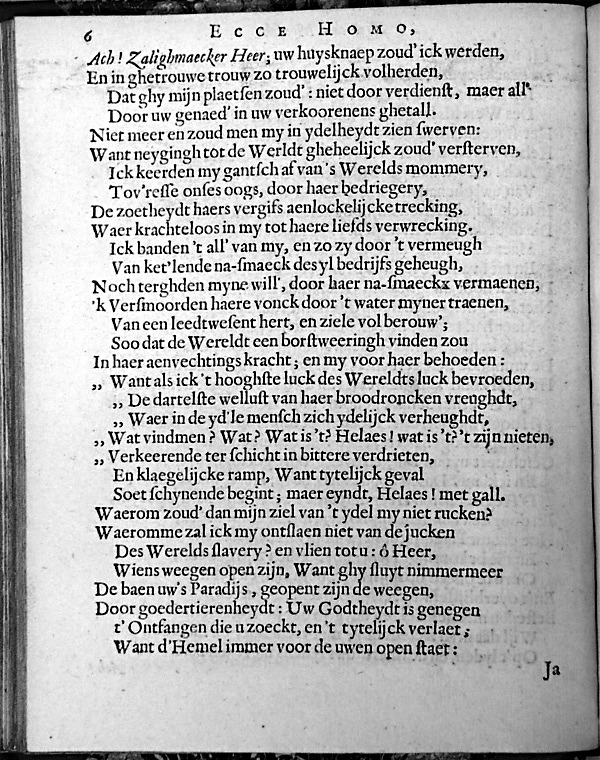 6 ECCE HOMO,
Ach! Zalighmaecker Heer; uw huysknaep zoud' ick werden,
En in ghetrouwe trouw zo trouwelijck volherden,
Dat ghy mijn plaetſen zoud': niet door verdienſt, maer all'
Door uw genaed' in uw verkoorenens ghetall.
Niet meer en zoud men my in ydelheydt zien ſwerven:
Want neygingh tot de Werldt gheheelijck zoud' verſterven,
Ick keerden my gantſch af van 's Werelds mommery,
Tov'reſſe onſes oogs, door haer bedriegery,
De zoetheydt haers vergifs aenlockelijcke trecking,
Waer krachteloos in my tot haere liefds verwrecking.
Ick banden 't all' van my, en zo zy door 't vermeugh
Van ket'lende na-ſmaeck des yl bedrijfs geheugh,
Noch terghden myne will', door haer na-ſmaeckx vermaenen,
'k Verſmoorden haere vonck door 't water myner traenen,
Van een leedtweſent hert, en ziele vol berouw';
Soo dat de Wereldt een borſtweeringh vinden zou
In haer aenvechtings kracht; en my voor haer behoeden:
„ Want als ick 't hooghſte luck des Wereldts luck bevroeden,
„ De dartelſte welluſt van haer broodroncken vrenghdt,
„ Waer in de yd'le menſch zich ydelijck verheughdt,
„ Wat vindmen? Wat? Wat is 't? Helaes! wat is 't? 't zijn nieten,
„ Verkeerende ter ſchicht in bittere verdrieten,
En klaegelijcke ramp, Want tytelijck geval
Soet ſchynende begint; maer eyndt, Helaes! met gall.
Waerom zoud' dan mijn ziel van 't ydel my niet rucken?
Waeromme zal ick my ontſlaen niet van de jucken
Des Werelds ſlavery? en vlien tot u: ô Heer,
Wiens weegen open zijn, Want ghy ſluyt nimmermeer
De baen uw's Paradijs, geopent zijn de weegen,
Door goedertierenheydt: Uw Godtheydt is genegen
t' Ontfangen die u zoeckt, en 't tytelijck verlaet;
Want d'Hemel immer voor de uwen open ſtaet:
Ja